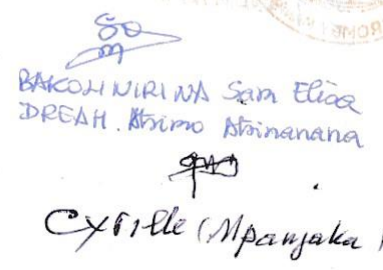 BAKOLINIRINA Sam Elisa
DREAH. Atsimo Atsinanana
Cyrille (Mpanjaka